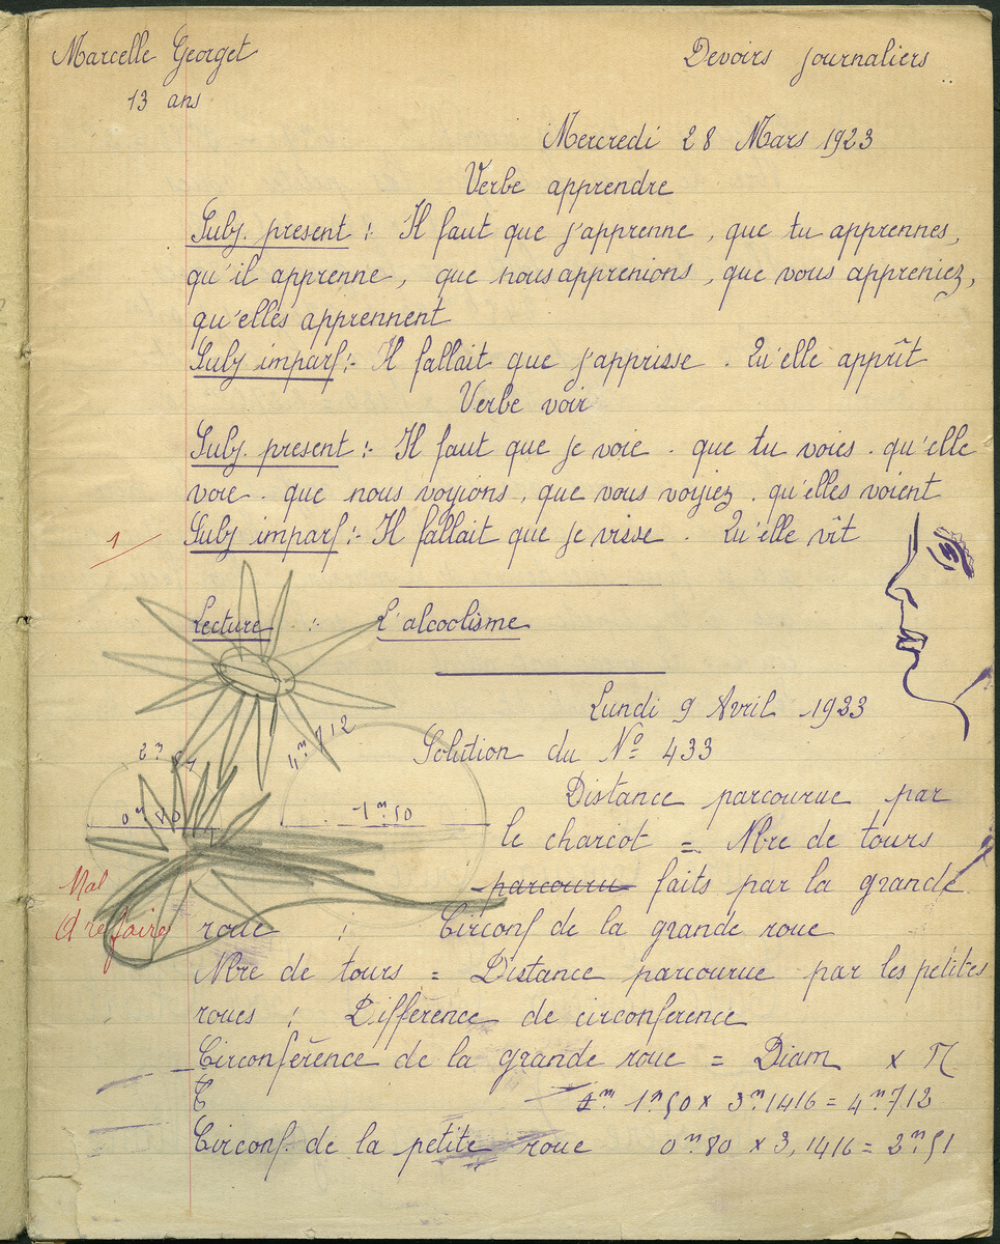 Marcelle Georget
Devoirs journaliers
13 ans
Mercredi 28 Mars 1923
Verbe apprendre
Subj. présent : Il faut que j'apprenne, que tu apprennes,
qu'il apprenne, que nous apprenions, que vous appreniez,
qu'elles apprennent
Subj imparf : Il fallait que j'apprisse. Qu'elle apprît
Verbe voir
Subj. présent : Il faut que je voie. que tu voies. qu'elle
voie. que nous voyions, que vous voyiez. qu'elles voient
1
Subj imparf : Il fallait que je visse. Qu'elle vît
Lecture : L'alcoolisme
Lundi 9 Avril 1923
Solution du Nº 433
4m 712
2m 51
0m 80
1m 50
Distance parcourue par
le charcot = Nbre de tours
parcouru faits par la grande
Mal
A refaire
roue : Circonf de la grande roue
Nbre de tours = Distance parcourue par les petites
roues : Différence de circonférence
Circonférence de la grande roue = Diam x π
C
4m 1m50 x 3m1416 = 4m712
Circonf. de la petite roue 0m80 x 3,1416 = 2m51